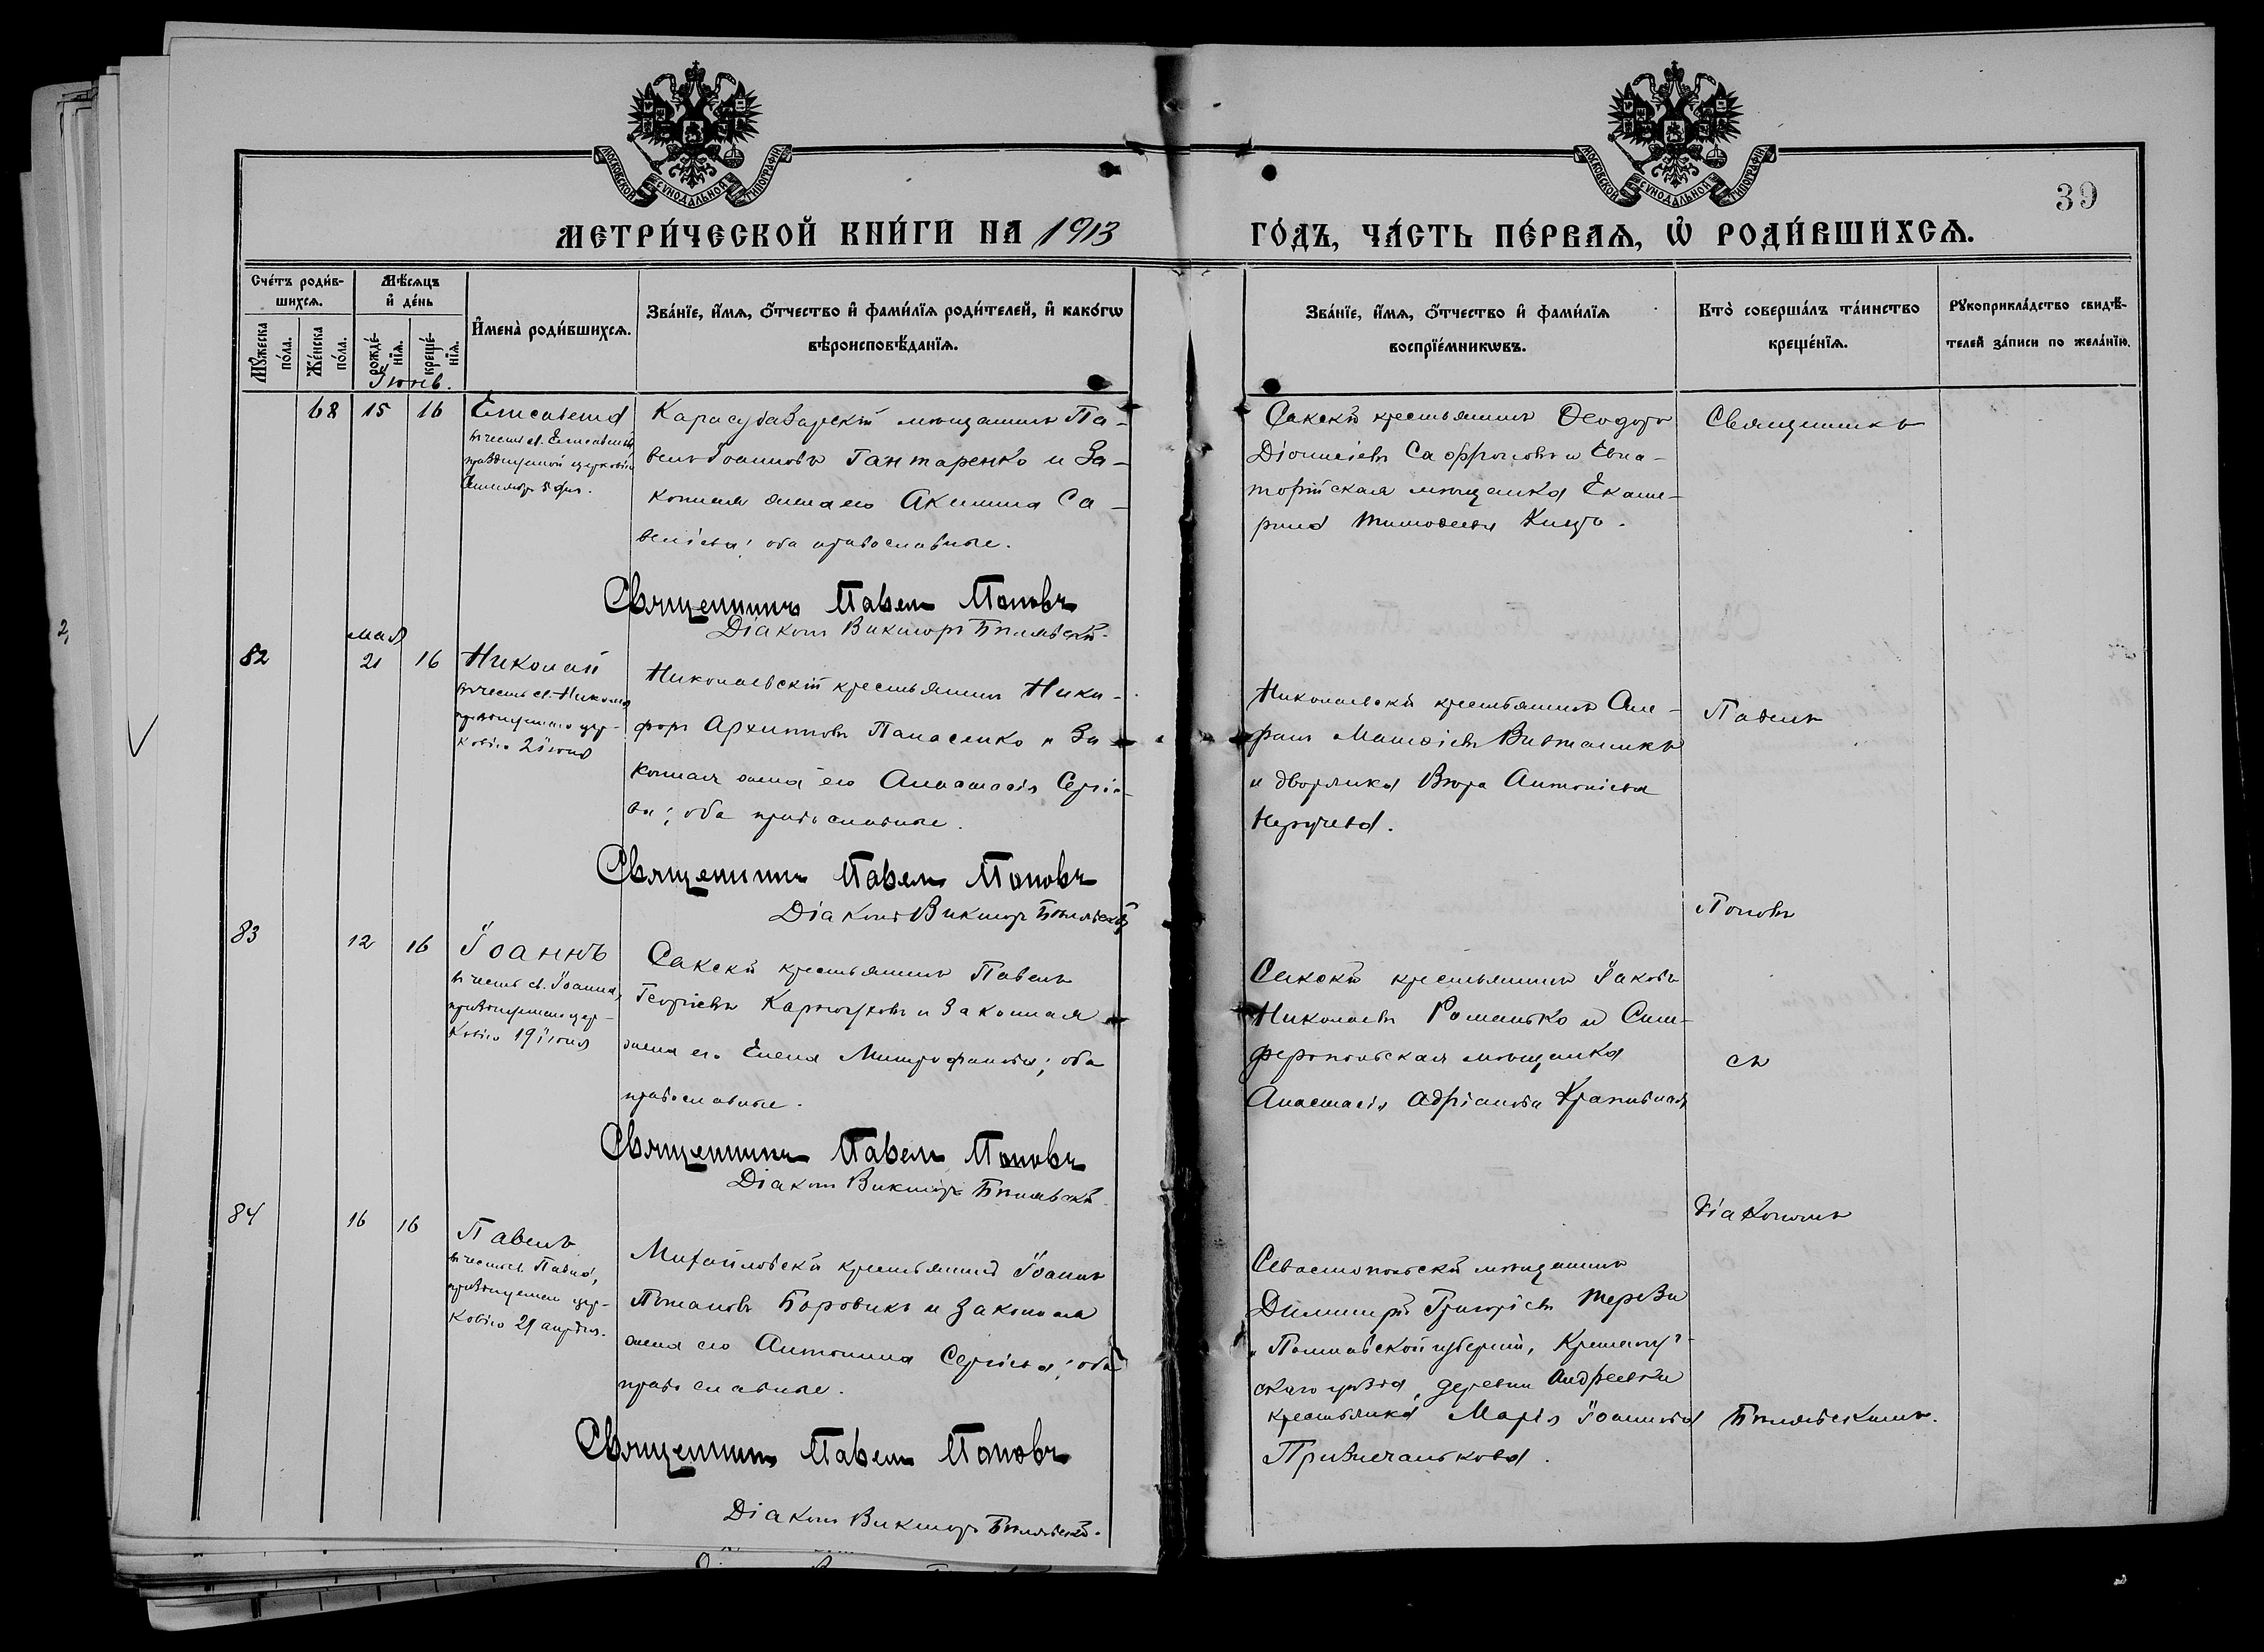 МОСКОВСКОЙ СѴНОДАЛЬНОЙ ТИПОГРАФІИ
МОСКОВСКОЙ СѴНОДАЛЬНОЙ ТИПОГРАФІИ
39
МЕТРИ́ЧЕСКОЙ КНИ́ГИ НА 1913
ГО́ДЪ, ЧА́СТЬ ПЕ́РВАѦ, Ѡ҆ РОДИ́ВШИХСѦ.
Сче́тъ роди́в-
шихсѧ.
Мѣ́сѧцъ
и҆ де́нь
И҆мена̀ роди́вшихсѧ.
Зва́нїе, и҆́мѧ, ѻ҆́тчество и҆ фами́лїѧ роди́телей, и҆ како́гѡ
вѣроисповѣ́данїѧ.
Мꙋ́жеска
по́ла.
Же́нска
по́ла.
рожде́-
нїѧ.
креще́-
нїѧ.
Зва́нїе, и҆́мѧ, ѻ҆́тчество и҆ фами́лїѧ
воспрїе́мникѡвъ.
Кто̀ соверша́лъ та́инство
креще́нїѧ.
Рꙋкоприкла́дство свидѣ́-
телей за́писи по жела́нїю.
Іюнь.
68 15 16 Елисавета
въ честь св. Елисаветы,
празднуемой церковію
Сентября 5 дня.
Карасубазарскій мѣщанинъ Па-
велъ Іоанновъ Гантаренко и За-
конная жена его Акилина Са-
веліева; оба православные.
Священникъ Павелъ Поповъ
Діаконъ Викторъ Бѣлявскій.
Сакскій крестьянинъ Ѳеодоръ
Діонисіевъ Сафроновъ и Евпа-
торійская мѣщанка Екате-
рина Тимоѳеева
Священникъ
мая
82 21 16 Николай
въ честь св. Николая
празднуемаго цер-
ковію 2 іюня
Николаевскій крестьянинъ Ники-
форъ Архиповъ Панасенко и За-
конная жена его Анастасія Сергіе-
ва; оба православные.
Священникъ Павелъ Поповъ
Діаконъ Викторъ Бѣлявскій
Николаевскій крестьянинъ
Матѳіевъ
и дворянка Вѣра Антоніева
Павелъ
Поповъ
83 12 16 Іоаннъ
въ честь св. Іоанна,
празднуемаго цер-
ковію 19 іюня
Сакскій крестьянинъ Павелъ
Георгіевъ и Законная
жена его Елена Митрофанова; оба
православные.
Священникъ Павелъ Поповъ
Діаконъ Викторъ Бѣлявскій
Сакскій крестьянинъ Іаковъ
Николаевъ Романько и Сим-
феропольская мѣщанка
Анастасія Адріанова Крапивная
съ
84 16 16 Павелъ
въ честь св. Павла,
празднуемаго цер-
ковію 29
Михайловскій крестьянинъ Іоаннъ
Потаповъ Боровикъ и законная
жена его Антонина Сергіева; оба
православные.
Священникъ Павелъ Поповъ
Діаконъ Викторъ Бѣлявскій.
Севастопольскій мѣщанинъ
Димитрій Григоріевъ
и Полтавской губерніи, Кременчуг-
скаго уѣзда, деревни Андреевки
крестьянка Марія Іоаннова
діакономъ
Бѣлявскимъ.